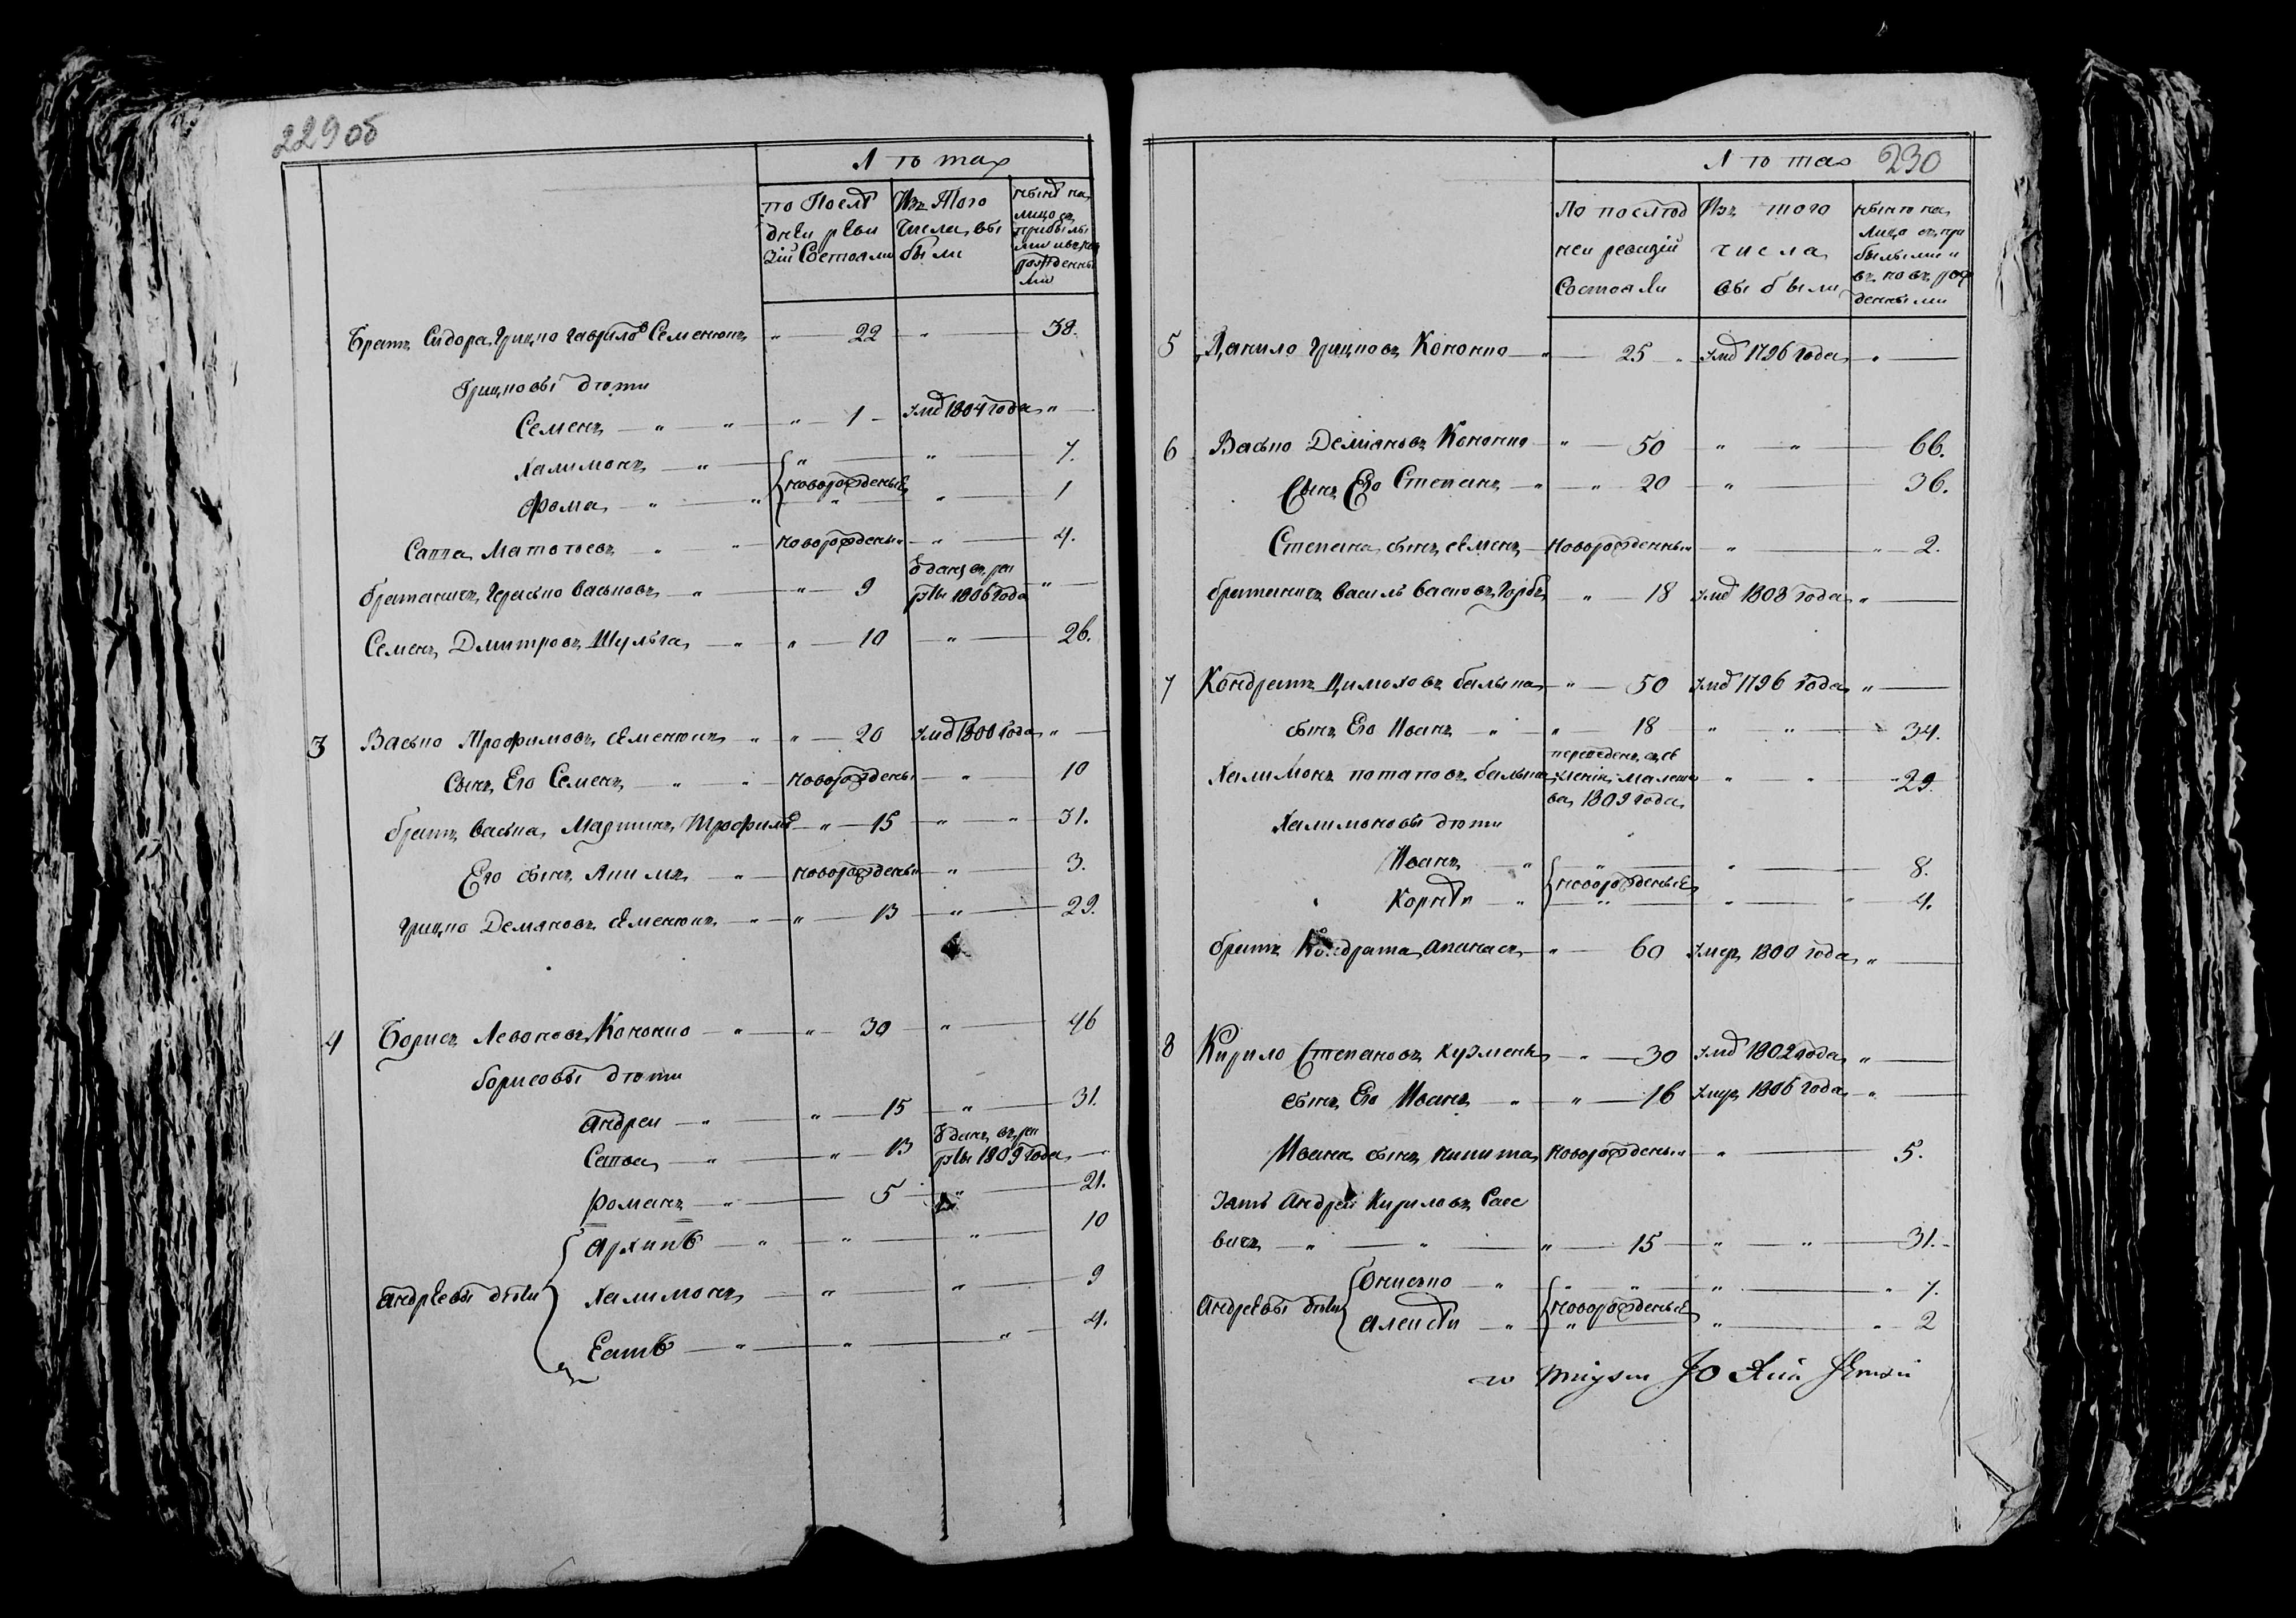 229 об
Лѣтах
по Послѣ
днеи реви
зіи Состояли
Изъ Того
Числа вы
были
нынѣ на
лицо съ
прибылы
ми и въновь
рожденны
ми
Братъ Сидора Грицко Гаврилов Семенюкъ " 22 " 38.
Грицковы дѣти
Семенъ " " " 1 умд 1804 года "
Халимонъ " " " 7.
Фома " " новорожденые " " 1
Сапка Матвѣевъ " " новорожденый " 4.
братаничъ Гераско Васковъ " " 9 Отданъ въ ре
кры 1806 года "
Семенъ Дмитровъ Шулга " " 10 " 26.
3 Васко Трофимовъ Семенюкъ " " 20 умд 1800 года "
Сынъ Его Семенъ " " новорожденый " 10
братъ Васка Мартинъ Трофимов " 15 " " 31.
Его сынъ Якимъ " новорожденый " 3.
Грицко Демяновъ Семенюкъ " " 13 " 29.
4 Борисъ Левоновъ Кононко " " 30 " 46
борисовы дѣти
Андреи " " 15 " 31.
Сапка " " 13 Отданъ въ ре
кры 1809 года
Романъ " 5 " 21.
Архипъ " " " 10
Андреевы дѣти Халимонъ " " 9
Евтиѳ " " " 4.
230
Лѣтах
По послѣд
неи ревизіи
Состояли
Изъ того
числа
выбыли
нынѣ на
лицо съ при
былыми и
въ новь рож
денными
5 Данило Грицковъ Кононко " 25 " умд 1796 года "
6 Васко Деміановъ Кононко " 50 " " 66.
Сынъ Его Степанъ " " 20 " 36.
Степана сынъ Семенъ Новорожденный " " 2.
братаничъ Василь Васковъ Горбъ " 18 умд 1808 года "
7 Кондратъ Цимоховъ балыка " 50 умд 1796 года "
сынъ Его Иванъ " " 18 " " 34.
переведенъ съ се
Халимонъ потаповъ балыка " " 29.
ва 1809 года
Халимоновы дѣти
Иванъ " " " 8.
новорожденые
Корнѣи " " " " 4.
братъ Кондрата Апанасъ " 60 умеръ 1800 года "
8 Кирило Степановъ Кузменко " 30 умд 1802 года "
сынъ Его Иванъ " " 16 умер 1806 года "
Ивана сынъ никита новорожденый " 5.
зять Андреи Кириловъ Саве
вичъ " " " 15 " " 31.
Онисько " " " " " 7.
Андреевы дѣти новорожденые
Алексѣи " " " " 2